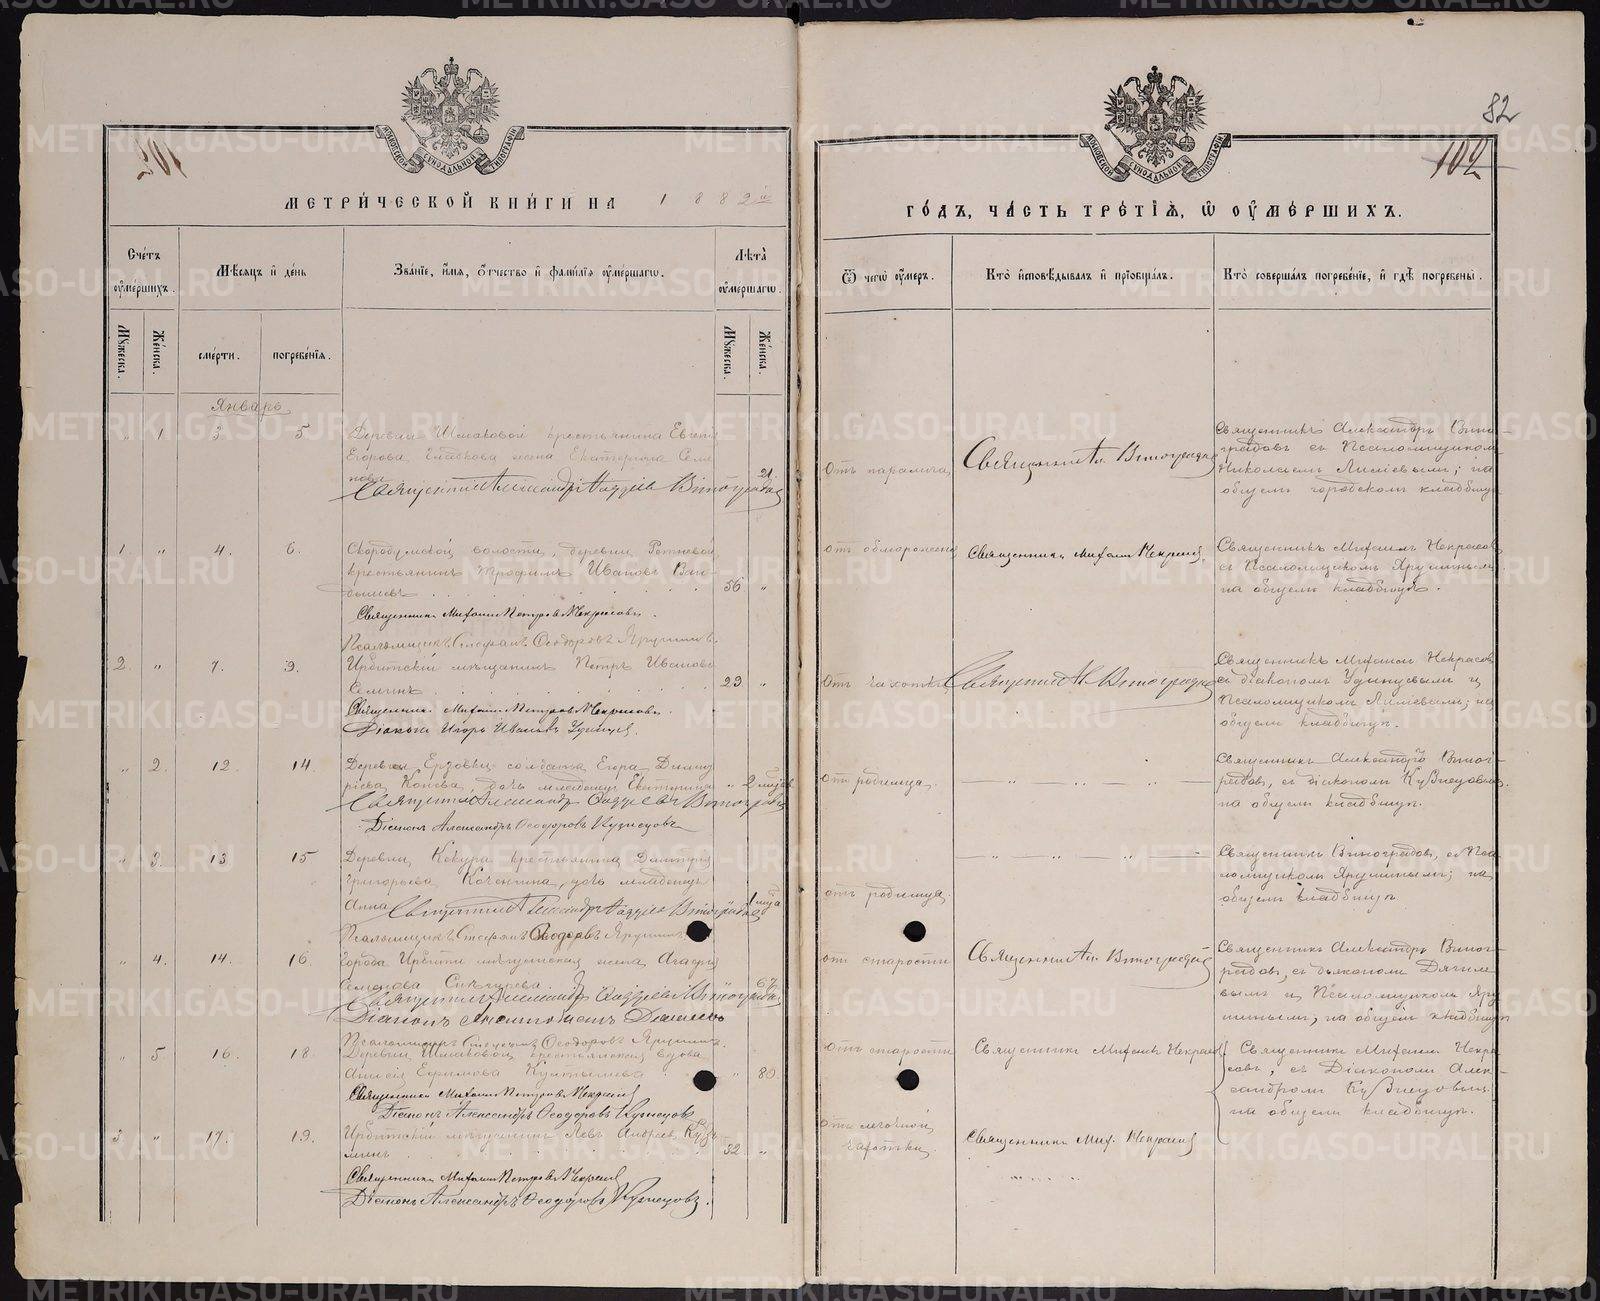 МЕТРИЧЕСКОЙ КНИГИ НА 1882й
Счетъ умершихъ.
Мѣсяцъ и день
Званіе, имя, отчество и фамилія умершагѡ.
Лѣта умершагѡ.
Мужеска.
Женска.
смерти.
погребенія.
Мужеска.
Женска.
Январь
" 1 3 5 Деревни Шмаковой крестьянина Евгенія
Егорова Гладкова жена Екатерина Семе
нова 21
Священникъ Александръ Виноградовъ
1. " 4. 6. Скородумской волости, деревни
крестьянинъ Трофимъ Ивановъ
36 "
Священникъ Михаилъ Петровъ Некрасовъ.
Псаломщикъ Стефанъ Ѳеодоровъ Ярушинъ.
2. " 7. 9. Ирбитскій мѣщанинъ Петръ Ивановъ
Семинъ 29 "
Священникъ Михаилъ Петровъ Некрасовъ.
Діаконъ Игоръ Ивановъ Удинцев.
" 2. 12. 14. Деревни солдата Егора Димит
ріева Конева, дочь младенецъ Екатерина " 2 мцѣв
Священникъ Александръ Виноградовъ
Діаконъ Александръ Ѳеодоровъ Кузнецовъ
" 3. 13 15 Деревни Кекура крестьянина Димитрія
Григорьева дочь младенецъ
Анна 1 мца
Священникъ Александръ Виноградовъ
Псаломщикъ Стефанъ Ѳеодоровъ Ярушинъ
" 4. 14. 16. Города Ирбити мѣщанская жена Агафія
Семенова " 67
Священникъ Александръ Виноградовъ
Діаконъ
Псаломщикъ Стефанъ Ѳеодоровъ Ярушинъ.
" 5 16 18. Деревни Шмаковой крестьянская вдова
Ефимова " 80
Священникъ Михаилъ Петровъ Некрасовъ
Діаконъ Александръ Ѳеодоровъ Кузнецовъ
3. " 17. 19. Ирбитскій мѣщанинъ Левъ Андреевъ Кузь
минъ 32 "
Священникъ Михаилъ Петровъ Некрасовъ
Діаконъ Александръ Ѳеодоровъ Кузнецовъ.
82
102
ГОДЪ, ЧАСТЬ ТРЕТІЯ, Ѡ УМЕРШИХЪ.
Ѿ чегѡ умеръ.
Кто исповѣдывалъ и пріобщалъ.
Кто совершалъ погребеніе, и гдѣ погребены.
Отъ паралича
Священникъ Ал. Виноградовъ
Священникъ Александръ Вино
градовъ съ Псаломщикомъ
Николаемъ на
общемъ городскомъ кладбищѣ
отъ обмороженія
Священникъ Михаилъ Некрасовъ.
Священникъ Михаилъ Некрасовъ
съ Псаломщикомъ Ярушинымъ
на общемъ кладбищѣ.
Отъ чахотки
Священникъ Ал. Виноградовъ
Священникъ Михаилъ Некрасовъ
съ діакономъ Удинцевымъ и
Псаломщикомъ на
общемъ кладбищѣ.
Отъ родимца.
Священникъ Александръ Виног-
радовъ, съ діакономъ Кузнецовымъ.
на общемъ кладбищѣ.
отъ родимца.
Священникъ Виноградовъ, съ Пса
ломщикомъ Ярушинымъ; на
общемъ кладбищѣ.
отъ старости
Священникъ Ал. Виноградовъ
Священникъ Александръ Виног-
радовъ, съ дьякономъ
вымъ и Псаломщикомъ Яру
шинымъ, на общемъ кладбищѣ
Отъ старости
Священникъ Михаилъ Некрасовъ
Священникъ Михаилъ Некра
совъ, съ Діакономъ Алек-
сандромъ Кузнецовымъ
на общемъ кладбищѣ.
Отъ легочной
чахотки.
Священникъ Мих. Некрасовъ
METRIKI.GASO-URAL.RU